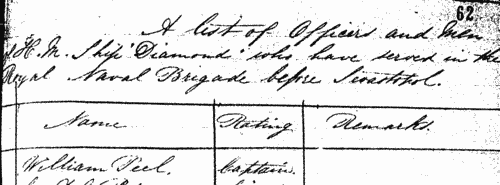 62
A list of Officers and Men
of H.M. Ship 'Diamond' who have served in the
Royal Naval Brigade before Sevastopol.
Name Rating Remarks.
William Peel. Captain.